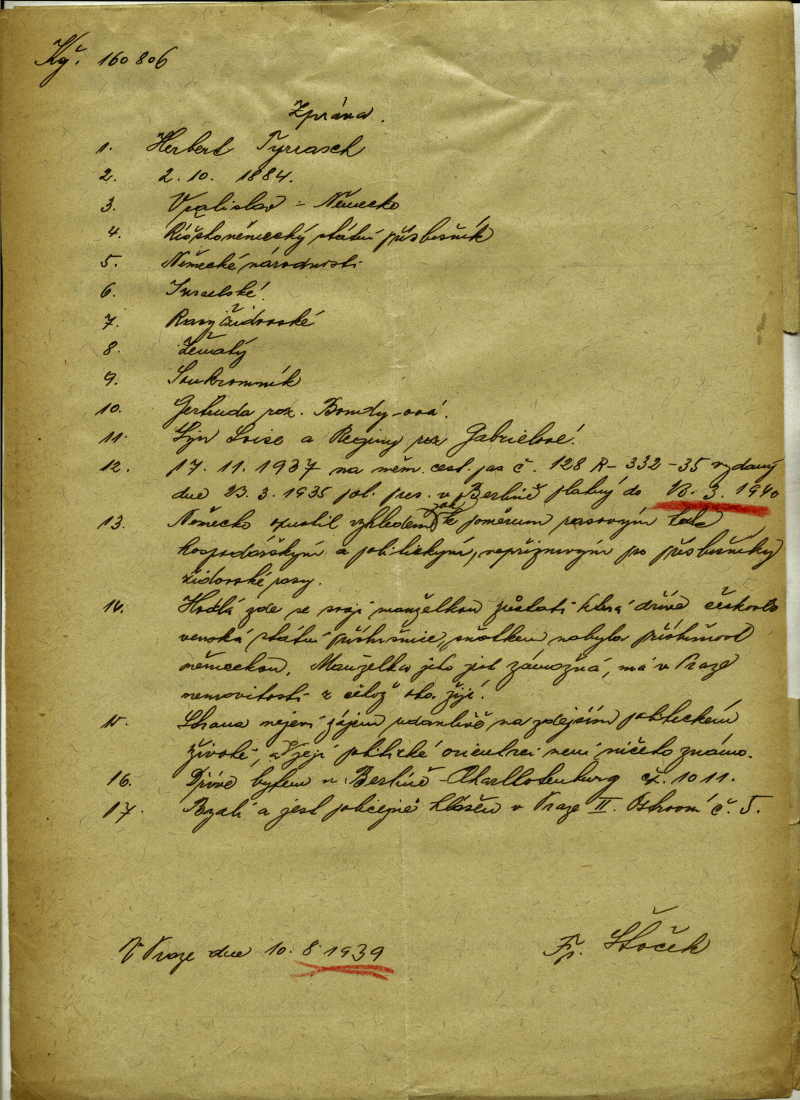 Kř. 160806
Zpráva.
1. Herbert Tyrrasch
2. 2. 10. 1884.
3. Vratislav - Německo
4. Říšskoněmecký státní příslušník
5. Německé národnosti
6. Israelské.
7. Rasy židovské
8. Ženatý
9. Soukromník
10. Gertruda roz. Bondy-ová.
11. Syn Luise a Reginy roz. Gabrielové.
12. 17. 11. 1937 na něm. cest. pas č. 128 R - 332 - 35 vydaný
dne 23. 3. 1935 pol. pres. v Berlíně platný do 3. 1940
13. Německo opustil vzhledem k poměrům rasovým
hospodářským a politickým, nepříznivým po příslušníky
židovské rasy.
14. Hodlá zde se svojí manželkou zůstati která dříve českoslo
venská státní příslušnice, sňatkem nabyla příslušnost
německou. Manželka jeho jest zámožná, má v Praze
nemovitosti z čehož oba žijí.
15. Strana nejeví zájem na zdejším politickém
životě, a o její politické orientaci není ničeho známo.
16. Dříve bytem v Berlíně - Charlottenburg čž. 1011.
17. Bydlí a jest policejně hlášen v Praze II. Ostrovní č. 5.
V Praze dne 10. 8. 1939
Fr. Štoček